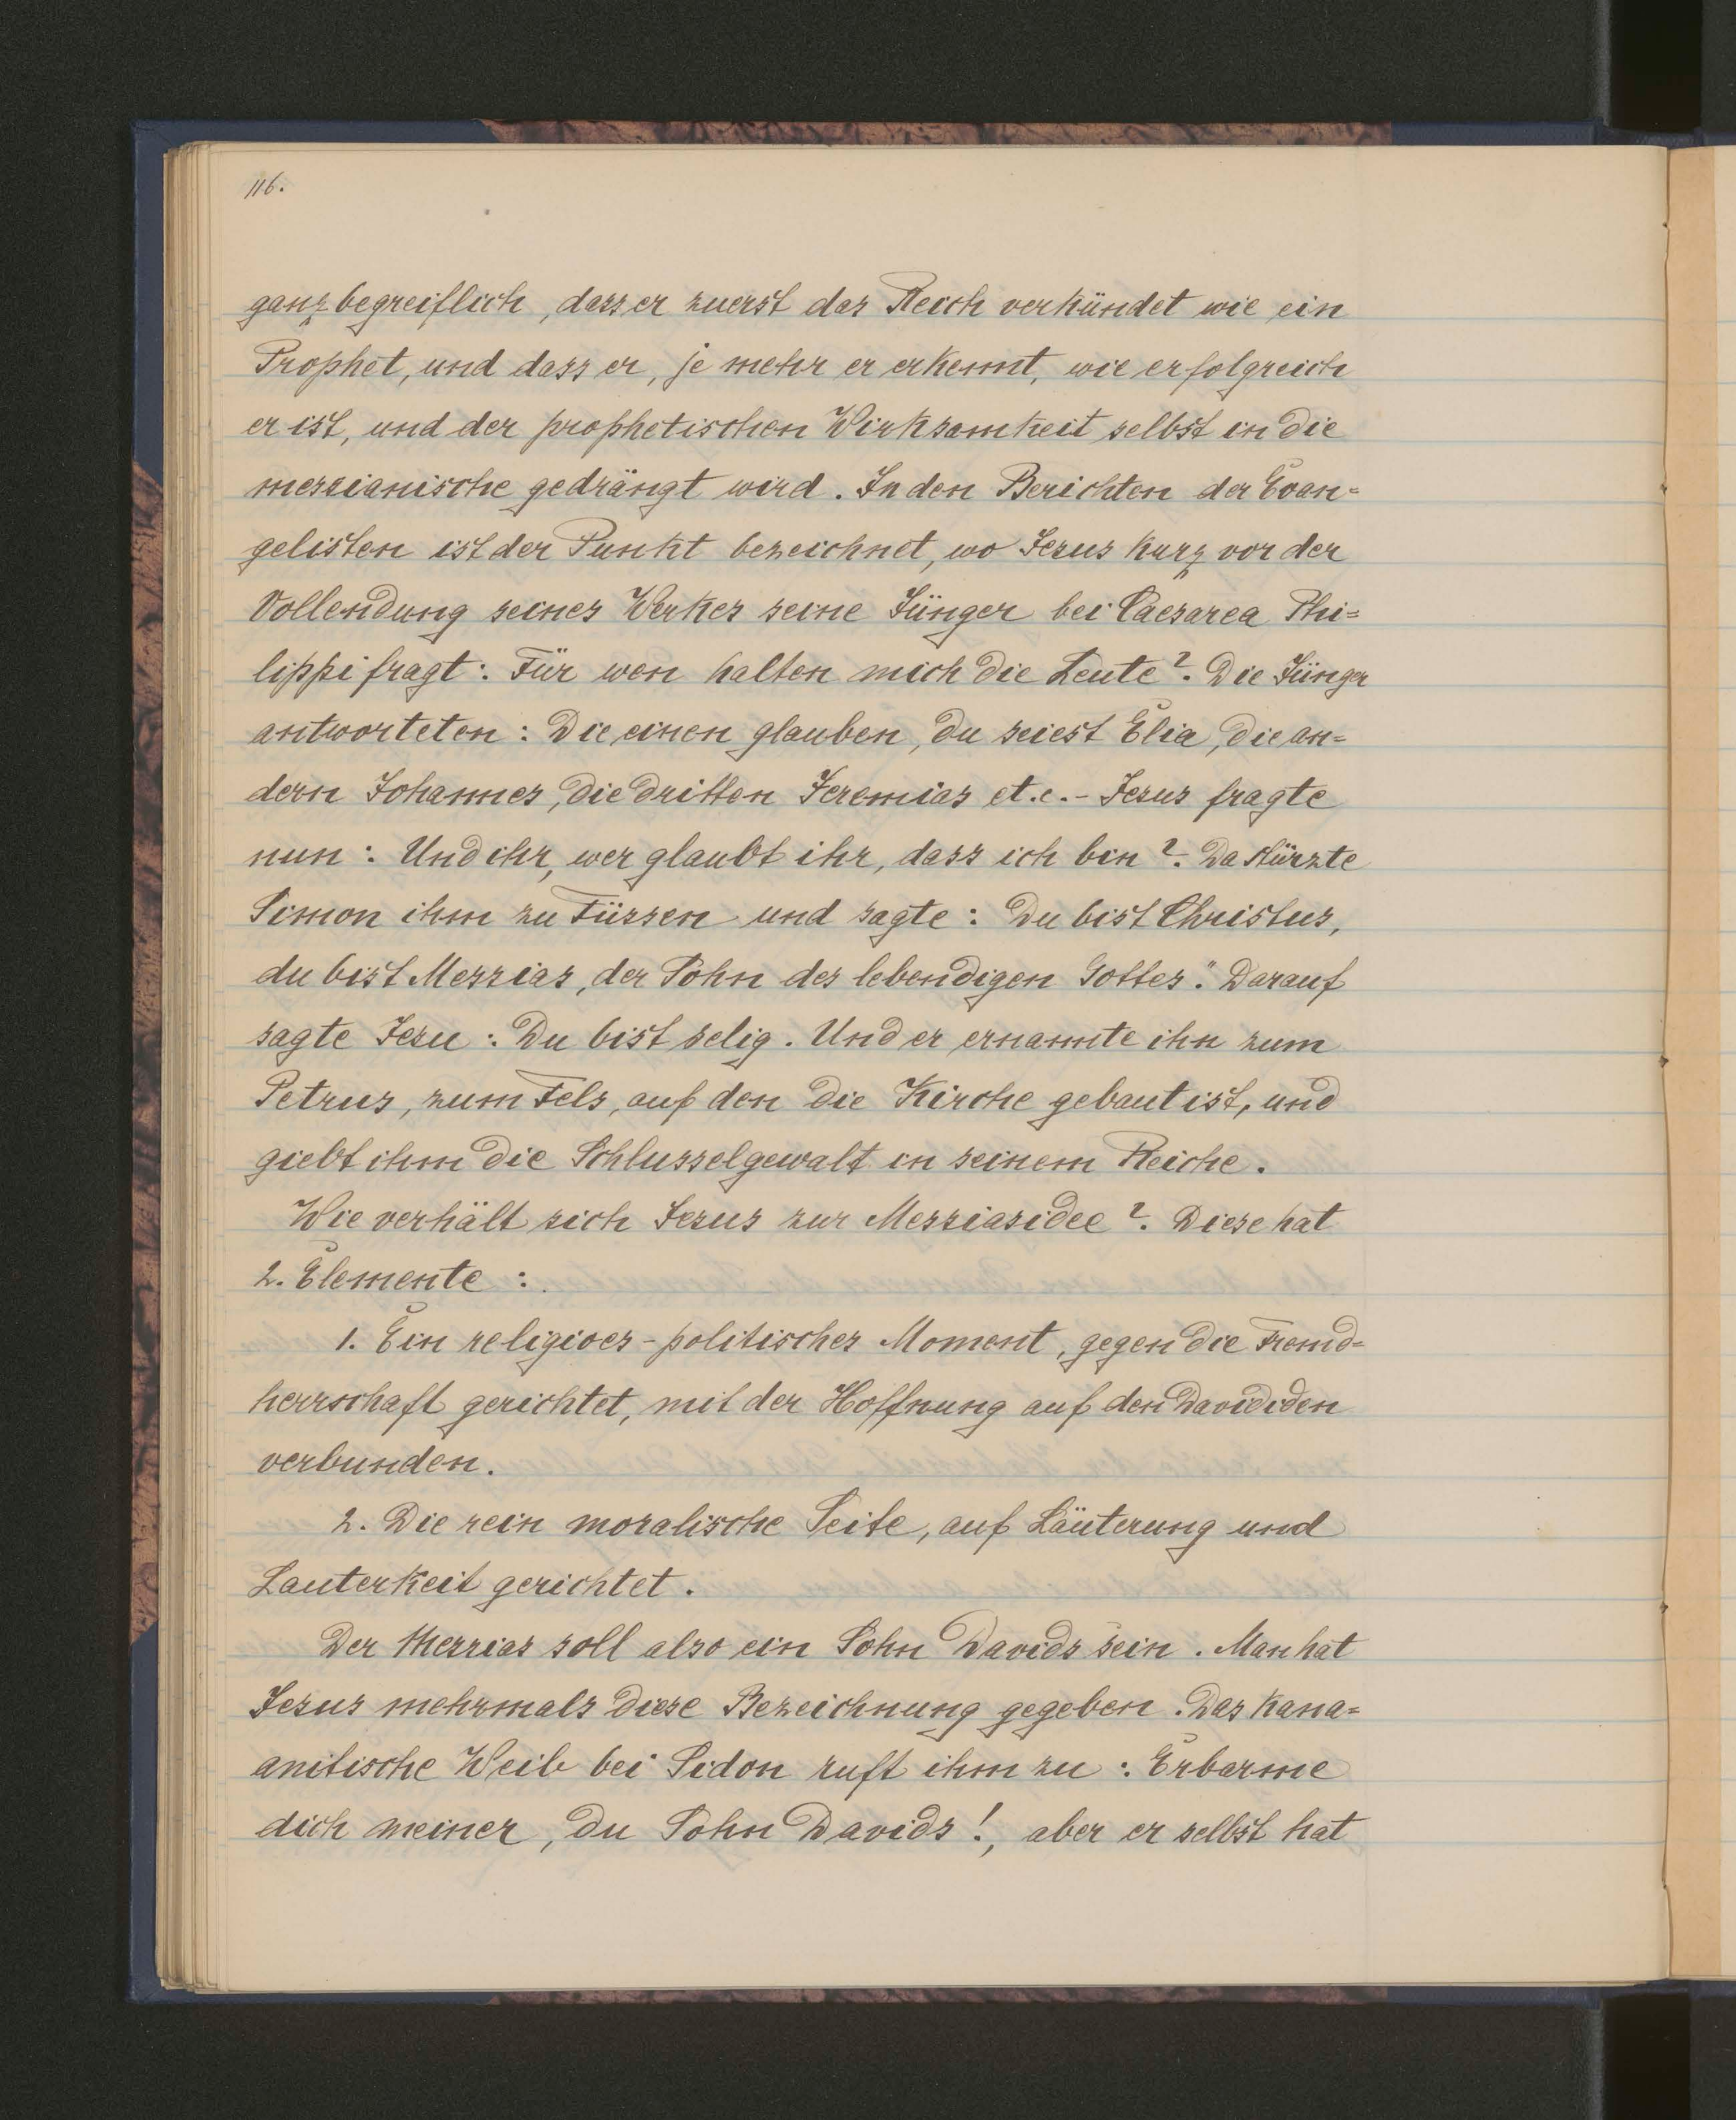 116.
ganz begreiflich, dass er zuerst das Reich verkündet wie ein
Prophet, und dass er, je mehr er erkennt, wie erfolgreich
er ist, und der prophetischen Wirksamkeit selbst in die
messianische gedrängt wird. In den Berichten der Evan=
gelisten ist der Punkt bezeichnet, wo Jesus kurz vor der
Vollendung seines Werkes seine Jünger bei Caesarea Phi=
lippi fragt: Für wen halten mich die Leute?. Die Jünger
antworteten: Die einen glauben, du seiest Elia, die an=
dern Johannes, die dritten Jeremias et.c.- Jesus fragte
nun: Und ihr, wer glaubt ihr, dass ich bin?. Da stürzte
Simon ihm zu Füssen und sagte: Du bist Christus,
du bist Messias, der Sohn des lebendigen Gottes." Darauf
sagte Jesu: Du bist selig. Und er ernannte ihn zum
Petrus, zum Fels, auf den die Kirche gebaut ist, und
giebt ihm die Schlusselgewalt in seinem Reiche.
Wie verhält sich Jesus zur Messiasidee?. Diese hat
2. Elemente:
1. Ein religioes-politisches Moment, gegen die Fremd=
herrschaft gerichtet, mit der Hoffnung auf den Davididen
verbunden.
2. Die rein moralische Seite, auf Läuterung und
Lauterkeit gerichtet.
Der Messias soll also ein Sohn Davids sein. Man hat
Jesus mehrmals diese Bezeichnung gegeben. Das kana=
anitische Weib bei Sidon ruft ihm zu: Erbarme
dich meiner, du Sohn Davids!, aber er selbst hat